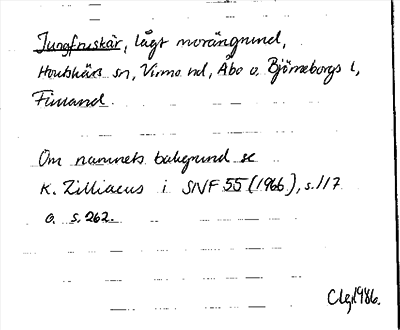 Jungfruskär, lågt morängrund,
Houtskärs sn, Virmo hd, Åbo o. Björneborgs l,
Finland.
Om namnets bakgrund se
K. Zilliacus i SNF 55 (1966), s. 117
o. s. 262.
1986.